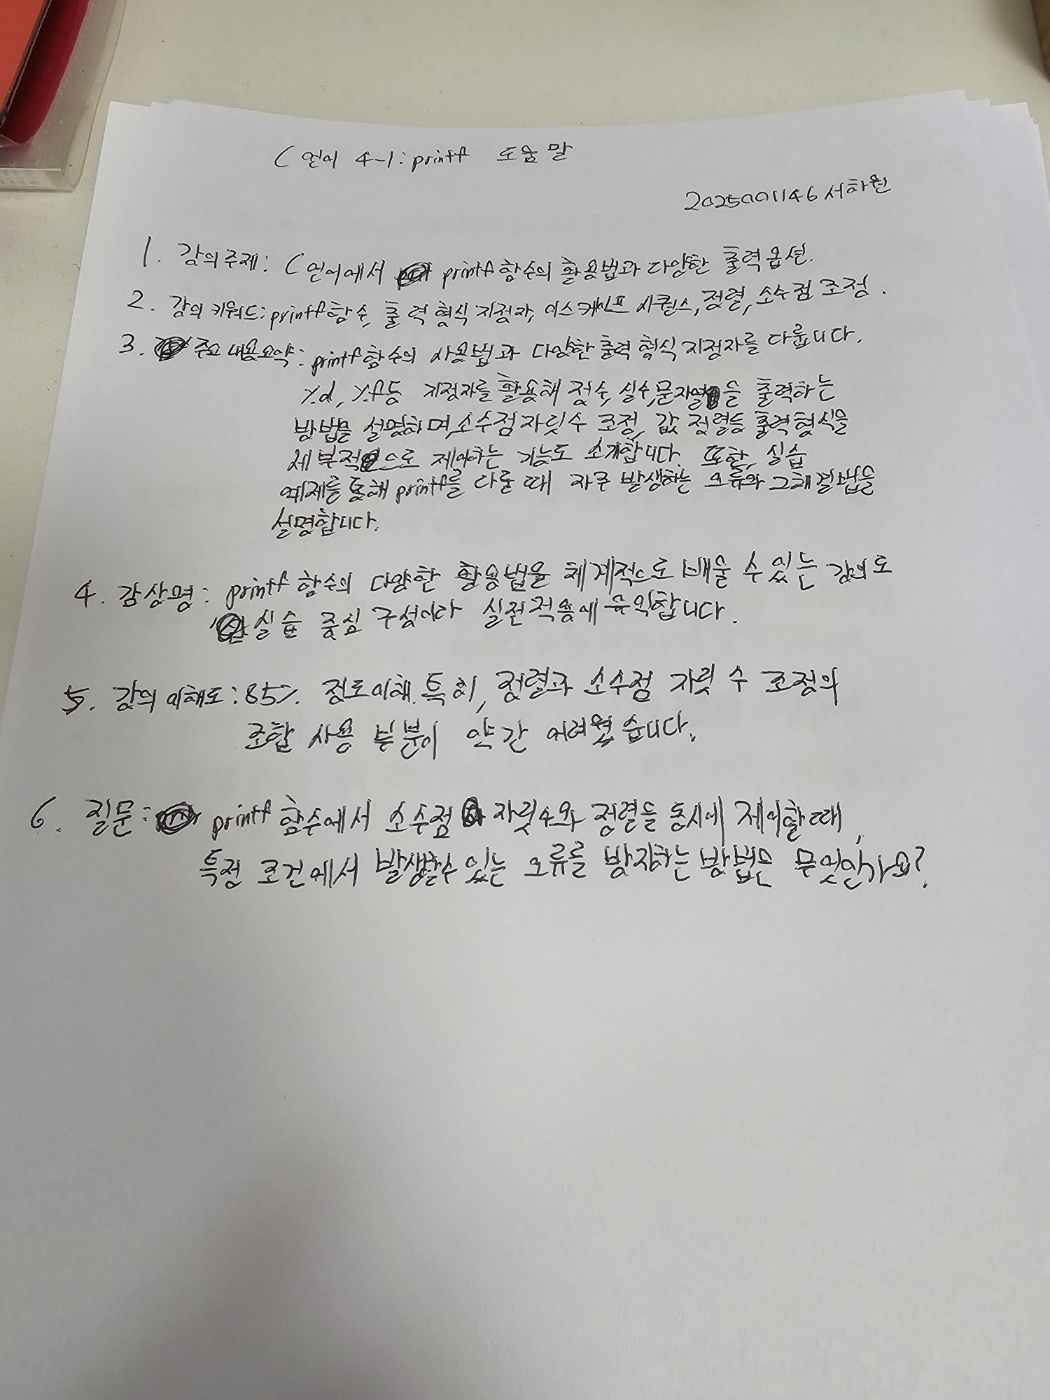 C언어 4-1: printf 도움말
2025001146 서하원
1. 강의주제: C언어에서 printf 함수의 활용법과 다양한 출력옵션.
2. 강의 키워드: printf 함수, 출력 형식 지정자, 이스케이프 시퀀스, 정렬, 소수점 조정.
3. 주요 내용요약: printf 함수의 사용법과 다양한 출력 형식 지정자를 다룹니다.
%d, %f등 지정자를 활용해 정수, 실수, 문자열을 출력하는
방법을 설명하며, 소수점 자릿수 조정, 값 정렬등 출력형식을
세부적으로 제어하는 기능도 소개합니다. 또한, 실습
예제를 통해 printf를 다룰 때 자주 발생하는 오류와 그 해결법을
설명합니다.
4. 감상평: printf 함수의 다양한 활용법을 체계적으로 배울 수 있는 강의로
실습 중심 구성이라 실전적용에 유익합니다.
5. 강의 이해도: 85% 정도이해. 특히, 정렬과 소수점 자릿 수 조정의
조합 사용 부분이 약간 어려웠습니다.
6. 질문: printf 함수에서 소수점 자릿수와 정렬을 동시에 제어할때,
특정 조건에서 발생할수 있는 오류를 방지하는 방법은 무엇인가요?